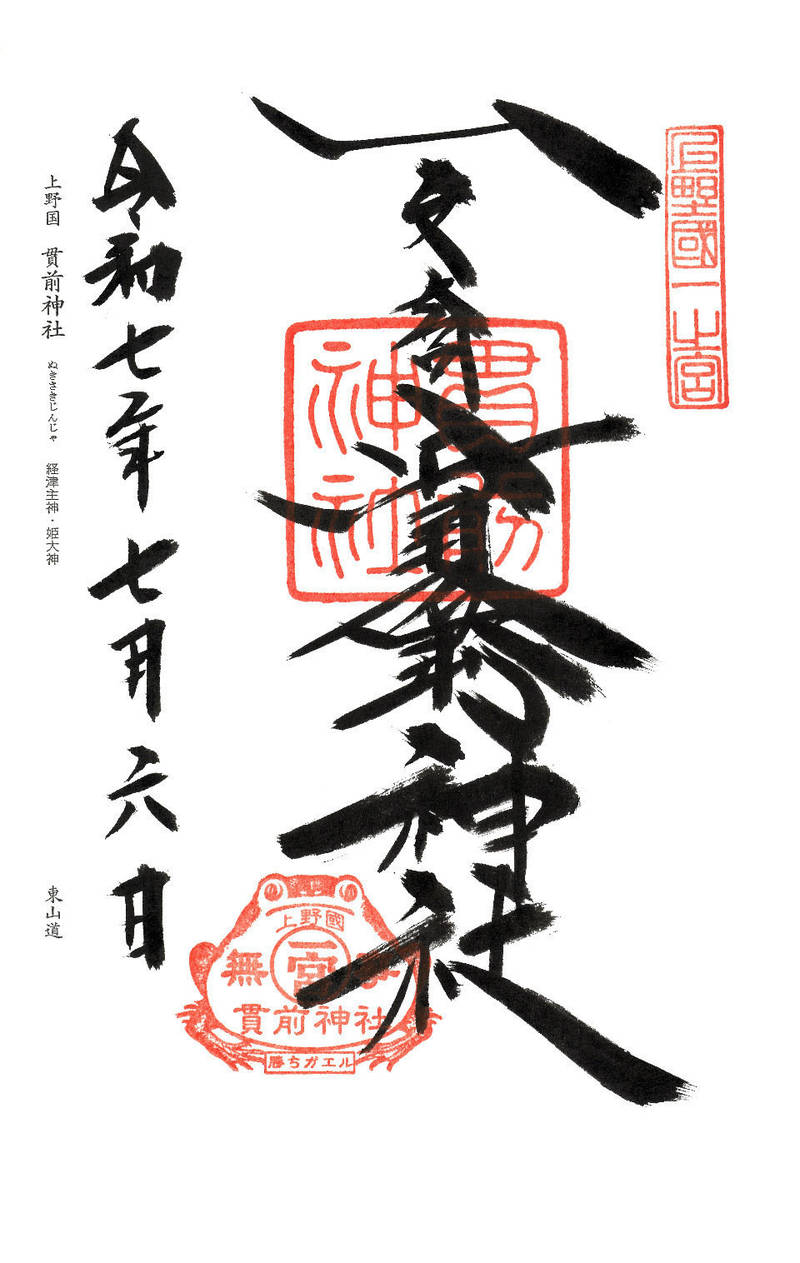 上野國一之宮
一之宮貫前神社
貫前神社
令和七年七月六日
上野国 貫前神社 ぬきさきじんじゃ 経津主神・姫大神
東山道
上野國
無 一宮 事
貫前神社
勝ちガエル